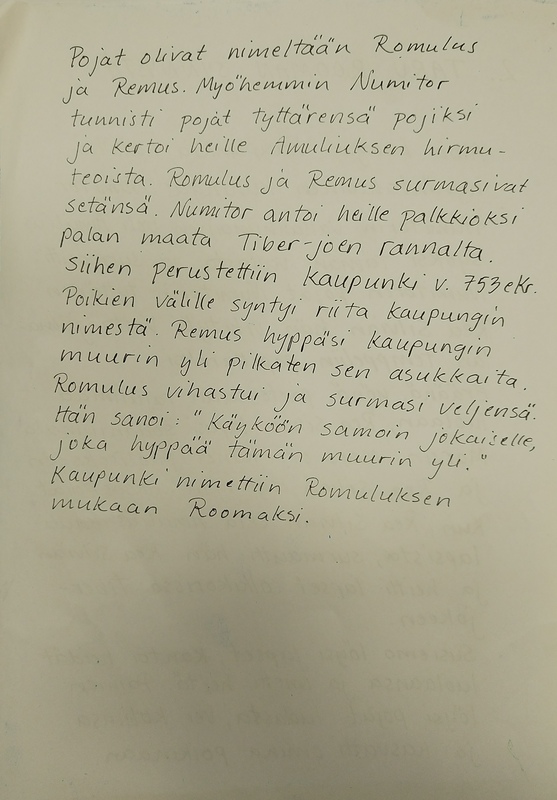 Pojat olivat nimeltään Romulus
ja Remus. Myöhemmin Numitor
tunnisti pojat tyttärensä pojiksi
ja kertoi heille Amuliuksen hirmu-
teoista. Romulus ja Remus surmasivat
setänsä. Numitor antoi heille palkkioksi
palan maata Tiber-joen rannalta.
Siihen perustettiin kaupunki v. 753 eKr.
Poikien välille syntyi riita kaupungin
nimestä. Remus hyppäsi kaupungin
muurin yli pilkaten sen asukkaita.
Romulus vihastui ja surmasi veljensä.
Hän sanoi: "Käyköön samoin jokaiselle,
joka hyppää tämän muurin yli."
Kaupunki nimettiin Romuluksen
mukaan Roomaksi.